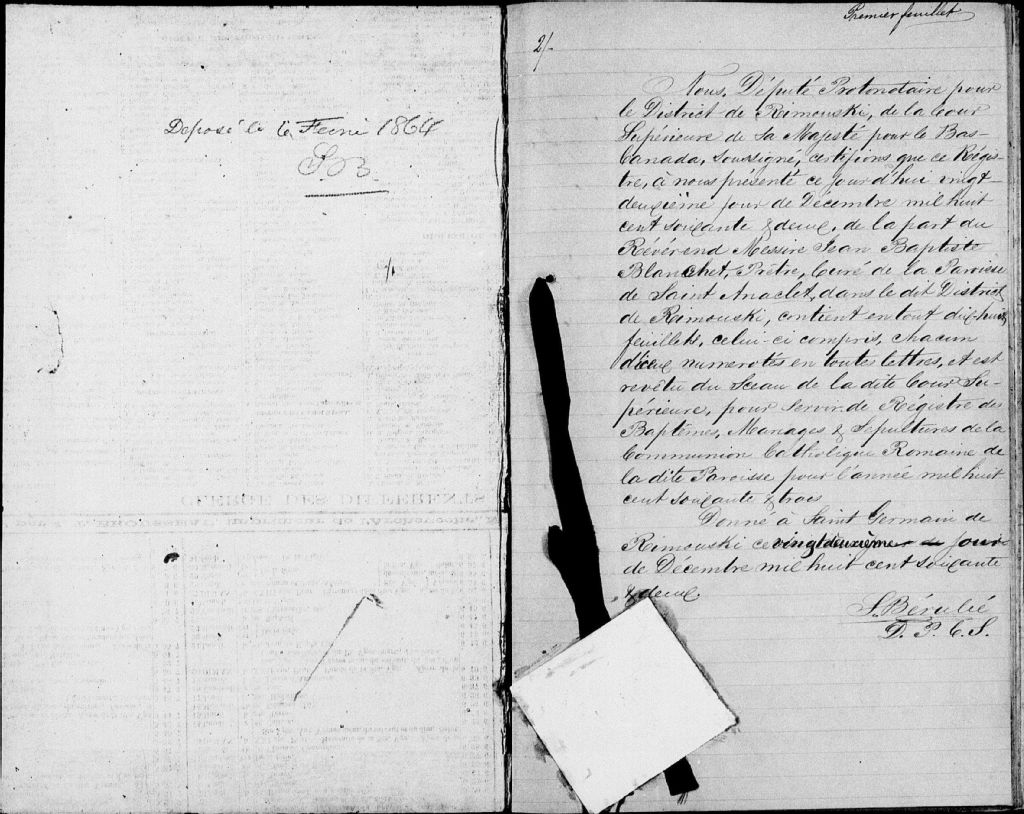 Déposé le 6 Fevri 1864
SB.
Premier feuillet
2/-
Nous, Député Protonotaire pour
le District de Rimouski, de la Cour
Supérieure de Sa Majesté pour le Bas-
Canada, soussigné, certifions que ce Régis-
tre, à nous présenté ce jourd'hui vingt-
deuxième jour de Décembre mil huit
cent soixante & deux, de la part du
Révérend Messire Jean Baptiste
Blanchet, Prêtre, Curé de la Paroisse
de Saint Anaclet, dans le dit District
de Rimouski, contient en tout dix-huit
feuillets, celui-ci compris, chacun
d'iceux numerotés en toutes lettres, et est
revêtu du Sceau de la dite Cour Su-
périeure, pour servir de Régistre des
Baptêmes, Mariages & Sepultures de la
Communion Catholique Romaine de
la dite Paroisse pour l'année mil huit
cent soixante & trois
Donné à Saint Germain de
Rimouski ce vingtdeuxième jour
de Décembre mil huit cent soixante
& deux
D. P. C. S.